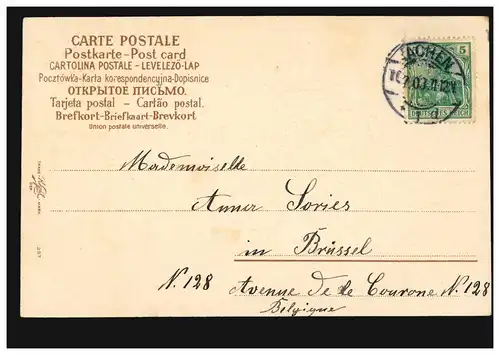 CARTE POSTALE
Postkarte-Post card
CARTOLINA POSTALE - LEVELEZÖ-LAP
Pocztówka-Karta korespondencyjna-Dopisnice
ОТКРЫТОЕ ПИСЬМО.
Tarjeta postal - Cartão postal.
Brefkort-Briefkaart-Brevkort
Union postale universelle.
5
AACHEN
DEUTSCHES REICH
Mademoiselle
Anna Sories
in Brüssel
N. 128 Avenue de la Couronne N. 128
Belgique